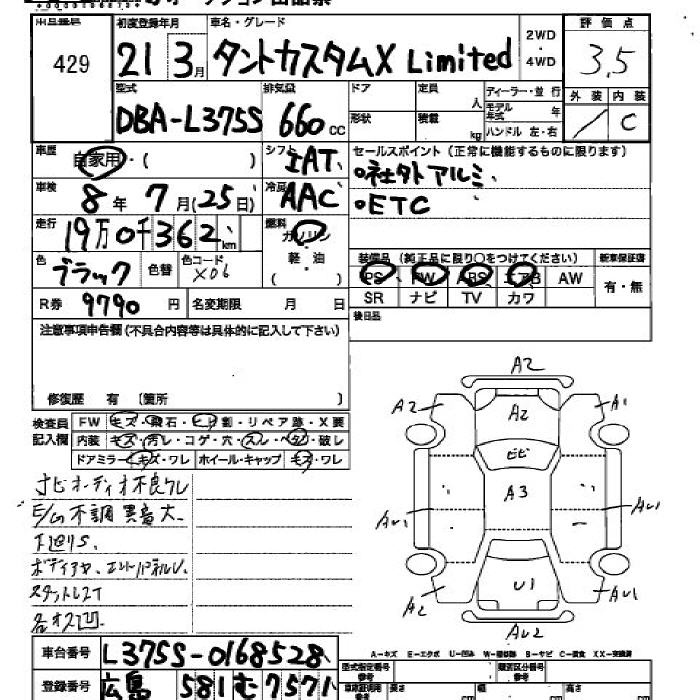 429
初度登録年月 車名・グレード 2WD・4WD 評価点
21 3月 タントカスタムX Limited 3.5
型式 排気量 ドア 定員 人 ディーラー・並行 外装 内装
DBA-L375S 660cc 形状 積載 kg モデル年式 年 ハンドル 左・右 / C
車歴 自家用・( ) シフト IAT セールスポイント (正常に機能するものに限ります)
車検 8年 7月(25日) 冷房 AAC °社外アルミ
°ETC
走行 19万0千362km 燃料 ガソリン・軽油
装備品 (純正品に限り○をつけてください) 新車保証書
色 ブラック 色替 色コード X06 PS PW ABS エアB AW 有・無
R券 9790円 名変期限 月 日 SR ナビ TV カワ
注意事項申告欄 (不具合内容等は具体的に記入して下さい) 後日品
修復歴 有 〔箇所 〕
検査員記入欄 FW キズ・飛石・ヒビ割・リペア跡・X要
内装 キズ・汚レ・コゲ・穴・スレ・ベタ・破レ
ドアミラー キズ・ワレ ホイール・キャップ キズ・ワレ
ナビオーディオ不良クレ
E/G不調 異音大
下廻りS.
A2
A2 A2 A1
ヒビ
A3
AU1 AU1
U1
A2 AU1
AU2
A-キズ E-エクボ U-凹み W-補修跡 S-サビ C-腐食 XX-交換済
車台番号 L375S-0168528
型式指定番号 参考 類別区分番号 参考
登録番号 広島 581 む 7571
長さ cm 幅 cm 高さ cm